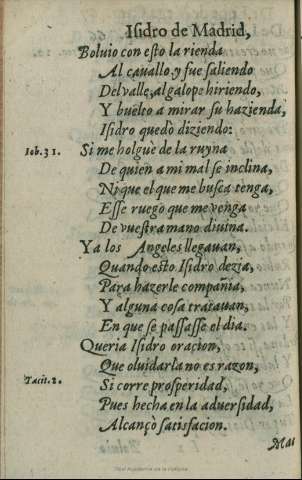 Isidro de Madrid,
Boluio con esto la rienda
Al cauallo, y fue saliendo
Del valle, al galope hiriendo,
Y buelto a mirar su hazienda,
Isidro quedò diziendo:
Iob. 31. Si me holguè de la ruyna
De quien a mi mal se inclina,
Ni que el que me busca tenga,
Esse ruego que me venga
De vuestra mano diuina.
Ya los Angeles llegauan,
Quando esto Isidro dezia,
Para hazerle compañia,
Y alguna cosa tratauan,
En que se passasse el dia.
Queria Isidro oracion,
Que oluidarla no es razon,
Tacit. 2. Si corre prosperidad,
Pues hecha en la aduersidad,
Alcançò satisfacion.
Mas
Real Academia de la Historia